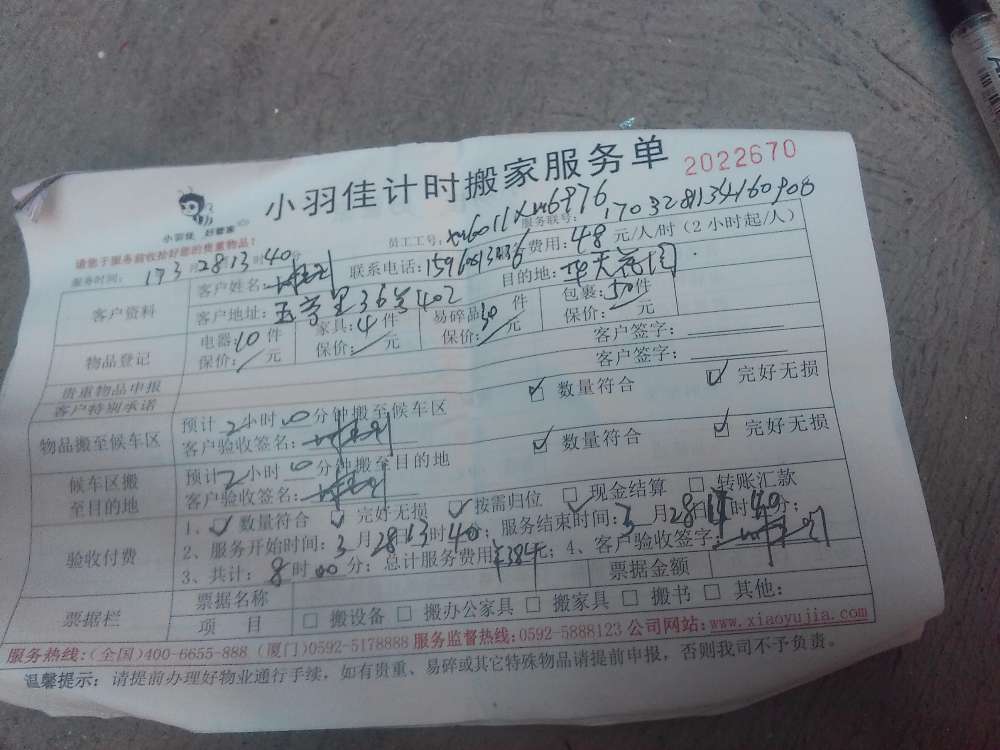 小羽佳计时搬家服务单 2022670
小羽佳 好管家
请您于服务前收拾好您的贵重物品!
员工工号: 服务联号: 170328134160906
服务时间: 173月28 13时40分 联系电话: 费用: 48 元/人/时 (2小时起/人)
客户资料 客户姓名: 目的地:
客户地址: 36号402
物品登记 电器: 10 件 家具: 4 件 易碎品 30 件 包裹: 50 件
保价: / 元 保价: / 元 保价: / 元 保价: / 元
贵重物品申报 客户签字:
客户特别承诺 客户签字:
物品搬至候车区 预计 2 小时 00 分钟搬至候车区 ☑ 数量符合 ☑ 完好无损
客户验收签名:
候车区搬至目的地 预计 2 小时 00 分钟搬至目的地 ☑ 数量符合 ☑ 完好无损
客户验收签名:
验收付费 1、☑ 数量符合 ☑ 完好无损 ☑ 按需归位 现金结算 □ 转账汇款
2、服务开始时间: 3 月 28 13 时 40 分; 服务结束时间: 3 月 28 时 40 分;
3、共计: 8 时 00 分; 总计服务费用 ¥384元; 4、客户验收签字:
票据栏 票据名称 票据金额
项 目 □ 搬设备 □ 搬办公家具 □ 搬家具 □ 搬书 □ 其他:
服务热线:(全国)400-6655-888 (厦门)0592-5178888 服务监督热线:0592-5888123 公司网站:www.xiaoyujia.com
温馨提示: 请提前办理好物业通行手续, 如有贵重、易碎或其它特殊物品请提前申报, 否则我司不予负责。